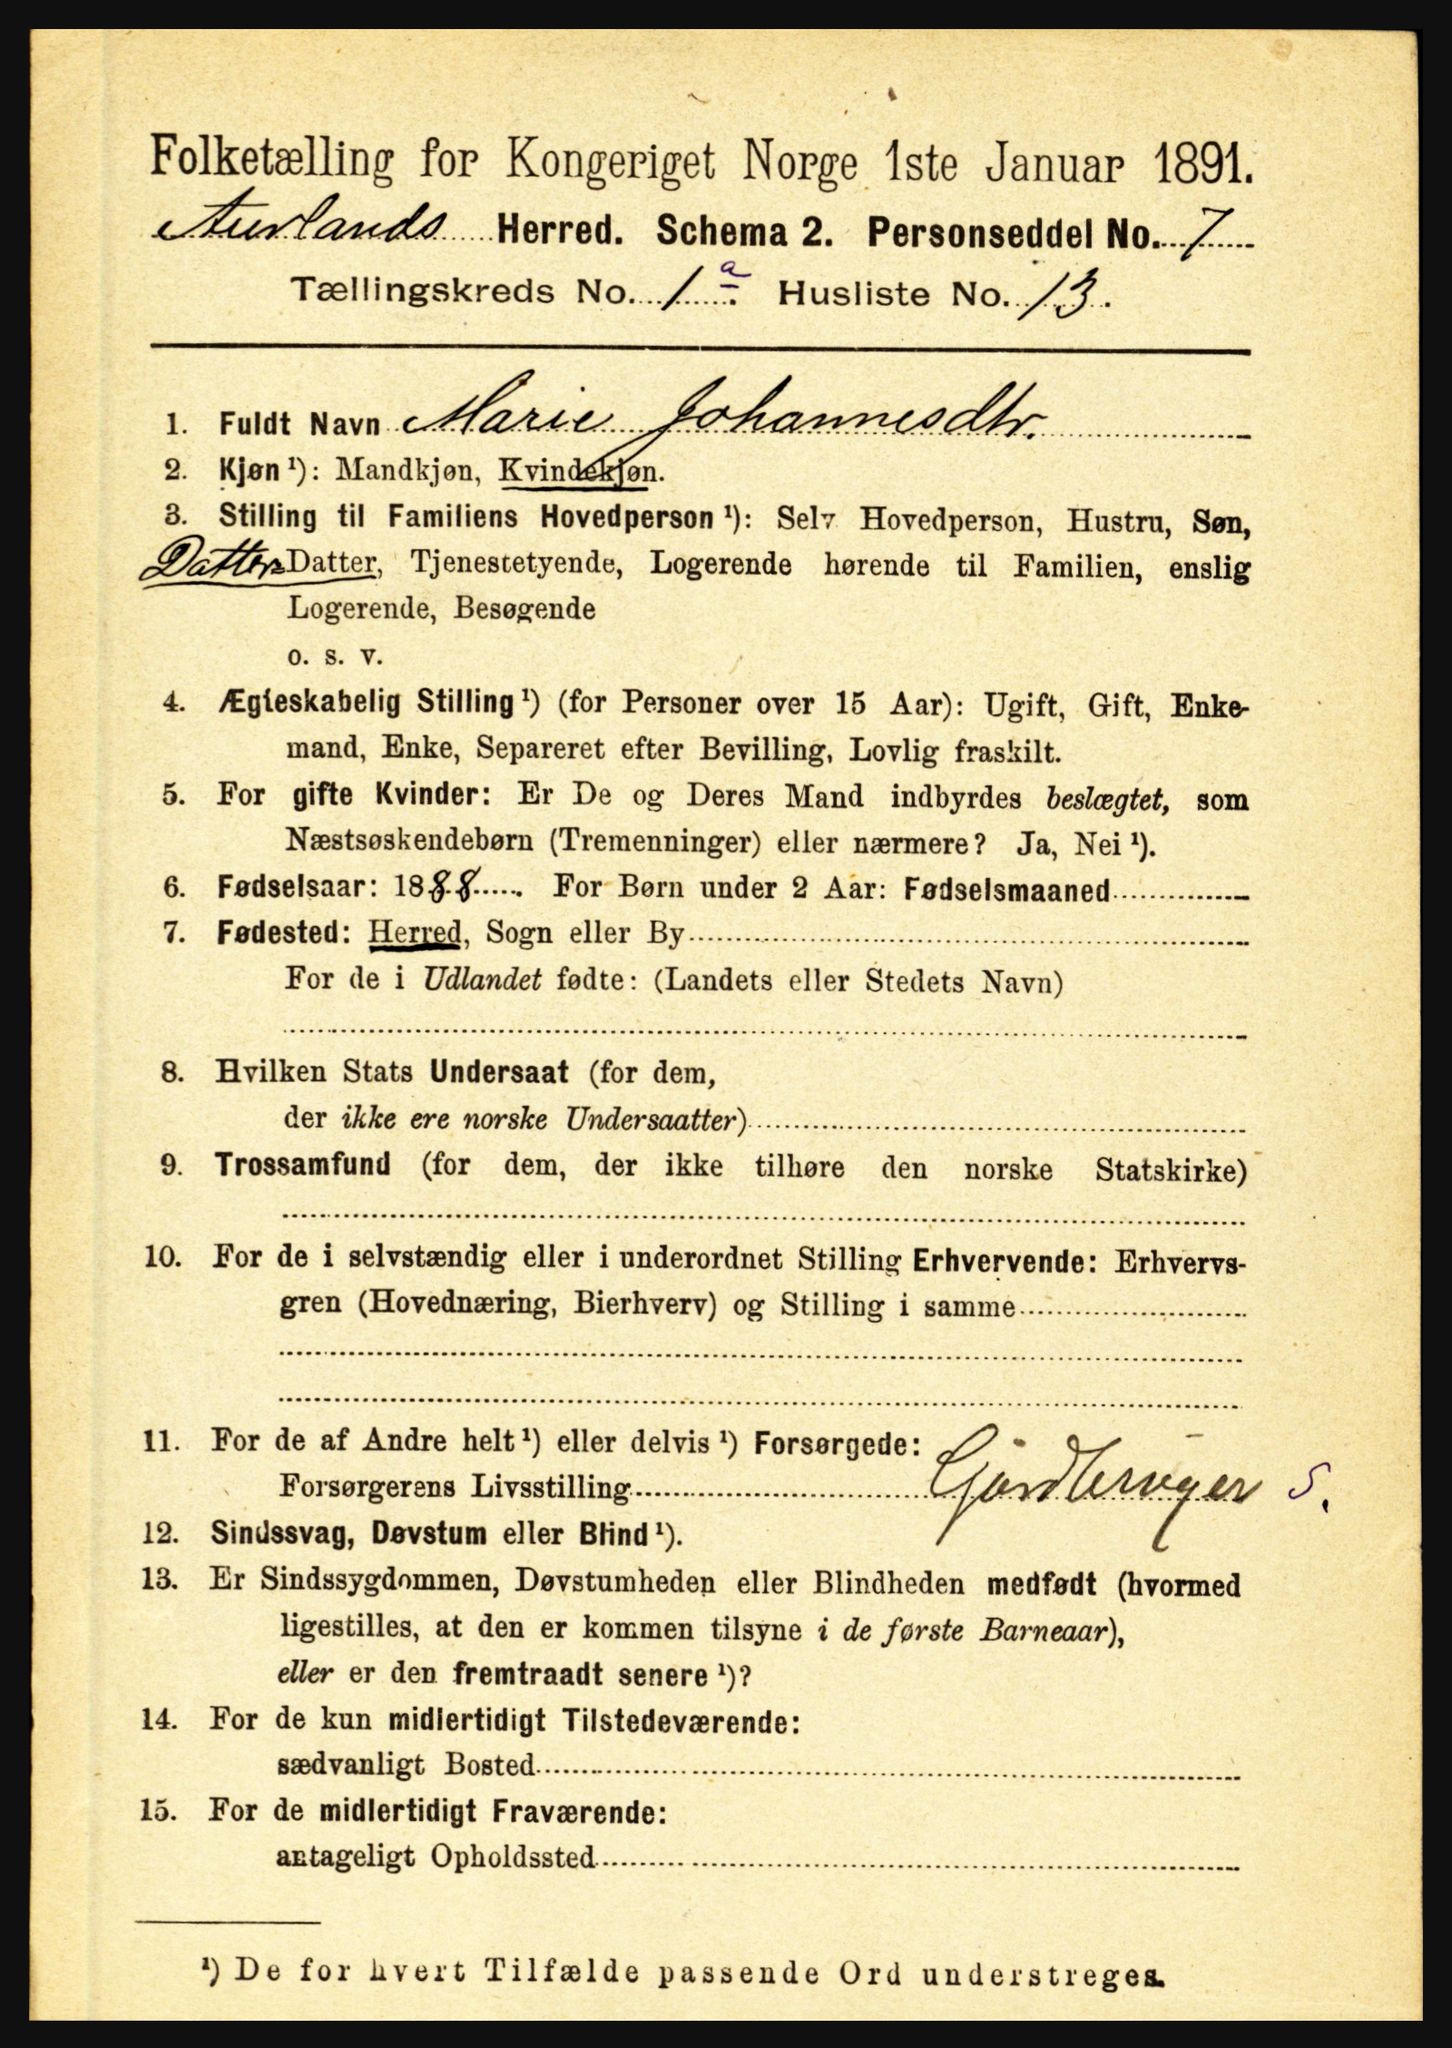 Folketælling for Kongeriget Norge 1ste Januar 1891.
Aurlands Herred. Schema 2. Personseddel No. 7
Tællingskreds No. 1 a. Husliste No. 13.
1. Fuldt Navn Marie Johannesdtr.
2. Kjøn ¹): Mandkjøn, Kvindekjøn.
3. Stilling til Familiens Hovedperson ¹): Selv Hovedperson, Hustru, Søn,
Datters Datter, Tjenestetyende, Logerende hørende til Familien, enslig
Logerende, Besøgende
o. s. v.
4. Ægteskabelig Stilling ¹) (for Personer over 15 Aar): Ugift, Gift, Enke-
mand, Enke, Separeret efter Bevilling, Lovlig fraskilt.
5. For gifte Kvinder: Er De og Deres Mand indbyrdes beslægtet, som
Næstsøskendebørn (Tremenninger) eller nærmere? Ja, Nei ¹).
6. Fødselsaar: 1888. For Børn under 2 Aar: Fødselsmaaned
7. Fødested: Herred, Sogn eller By
For de i Udlandet fødte: (Landets eller Stedets Navn)
8. Hvilken Stats Undersaat (for dem,
der ikke ere norske Undersaatter)
9. Trossamfund (for dem, der ikke tilhøre den norske Statskirke)
10. For de i selvstændig eller i underordnet Stilling Erhvervende: Erhvervs-
gren (Hovednæring, Bierhverv) og Stilling i samme
11. For de af Andre helt ¹) eller delvis ¹) Forsørgede:
Forsørgerens Livsstilling Gardbruger S.
12. Sindssvag, Døvstum eller Blind ¹).
13. Er Sindssygdommen, Døvstumheden eller Blindheden medfødt (hvormed
ligestilles, at den er kommen tilsyne i de første Barneaar),
eller er den fremtraadt senere ¹)?
14. For de kun midlertidigt Tilstedeværende:
sædvanligt Bosted
15. For de midlertidigt Fraværende:
antageligt Opholdssted
¹) De for hvert Tilfælde passende Ord understreges.